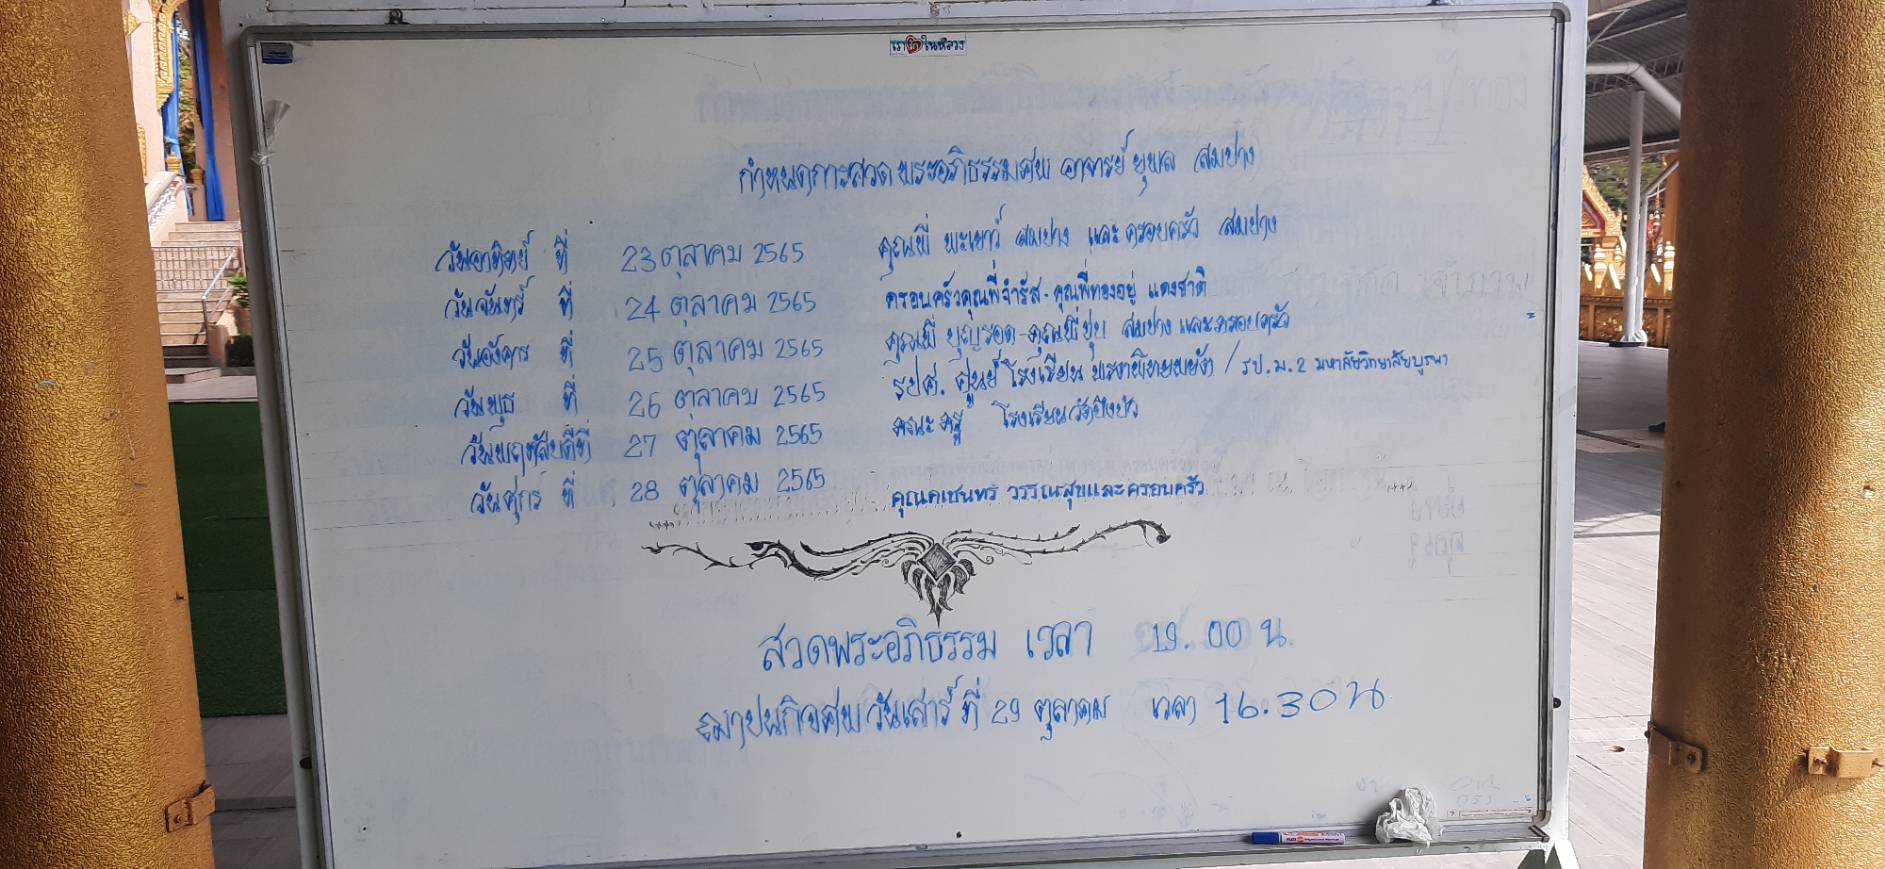 เรารักในหลวง
กำหนดการสวดพระอภิธรรมศพ อาจารย์ยุพล สมปาง
วันอาทิตย์ ที่ 23 ตุลาคม 2565 คุณพี่ พะเยาว์ สมปาง และครอบครัว สมปาง
วันจันทร์ ที่ 24 ตุลาคม 2565 ครอบครัวคุณพี่จำรัส-คุณพี่ทองอยู่ แดงชาติ
วันอังคาร ที่ 25 ตุลาคม 2565 คุณพี่ บุญรอด-คุณพี่ปุ่น สมปาง และครอบครัว
วันพุธ ที่ 26 ตุลาคม 2565 รปศ. ศูนย์โรงเรียน / รป.ม.2 มหาลัยวิทยาลัยบูรพา
วันพฤหัสบดีที่ 27 ตุลาคม 2565 คณะครู โรงเรียนวัดบึงบัว
วันศุกร์ ที่ 28 ตุลาคม 2565 คุณคเชนทร วรรณสุขและครอบครัว
สวดพระอภิธรรม เวลา 19.00 น.
ฌาปนกิจศพ วันเสาร์ ที่ 29 ตุลาคม เวลา 16.30 น